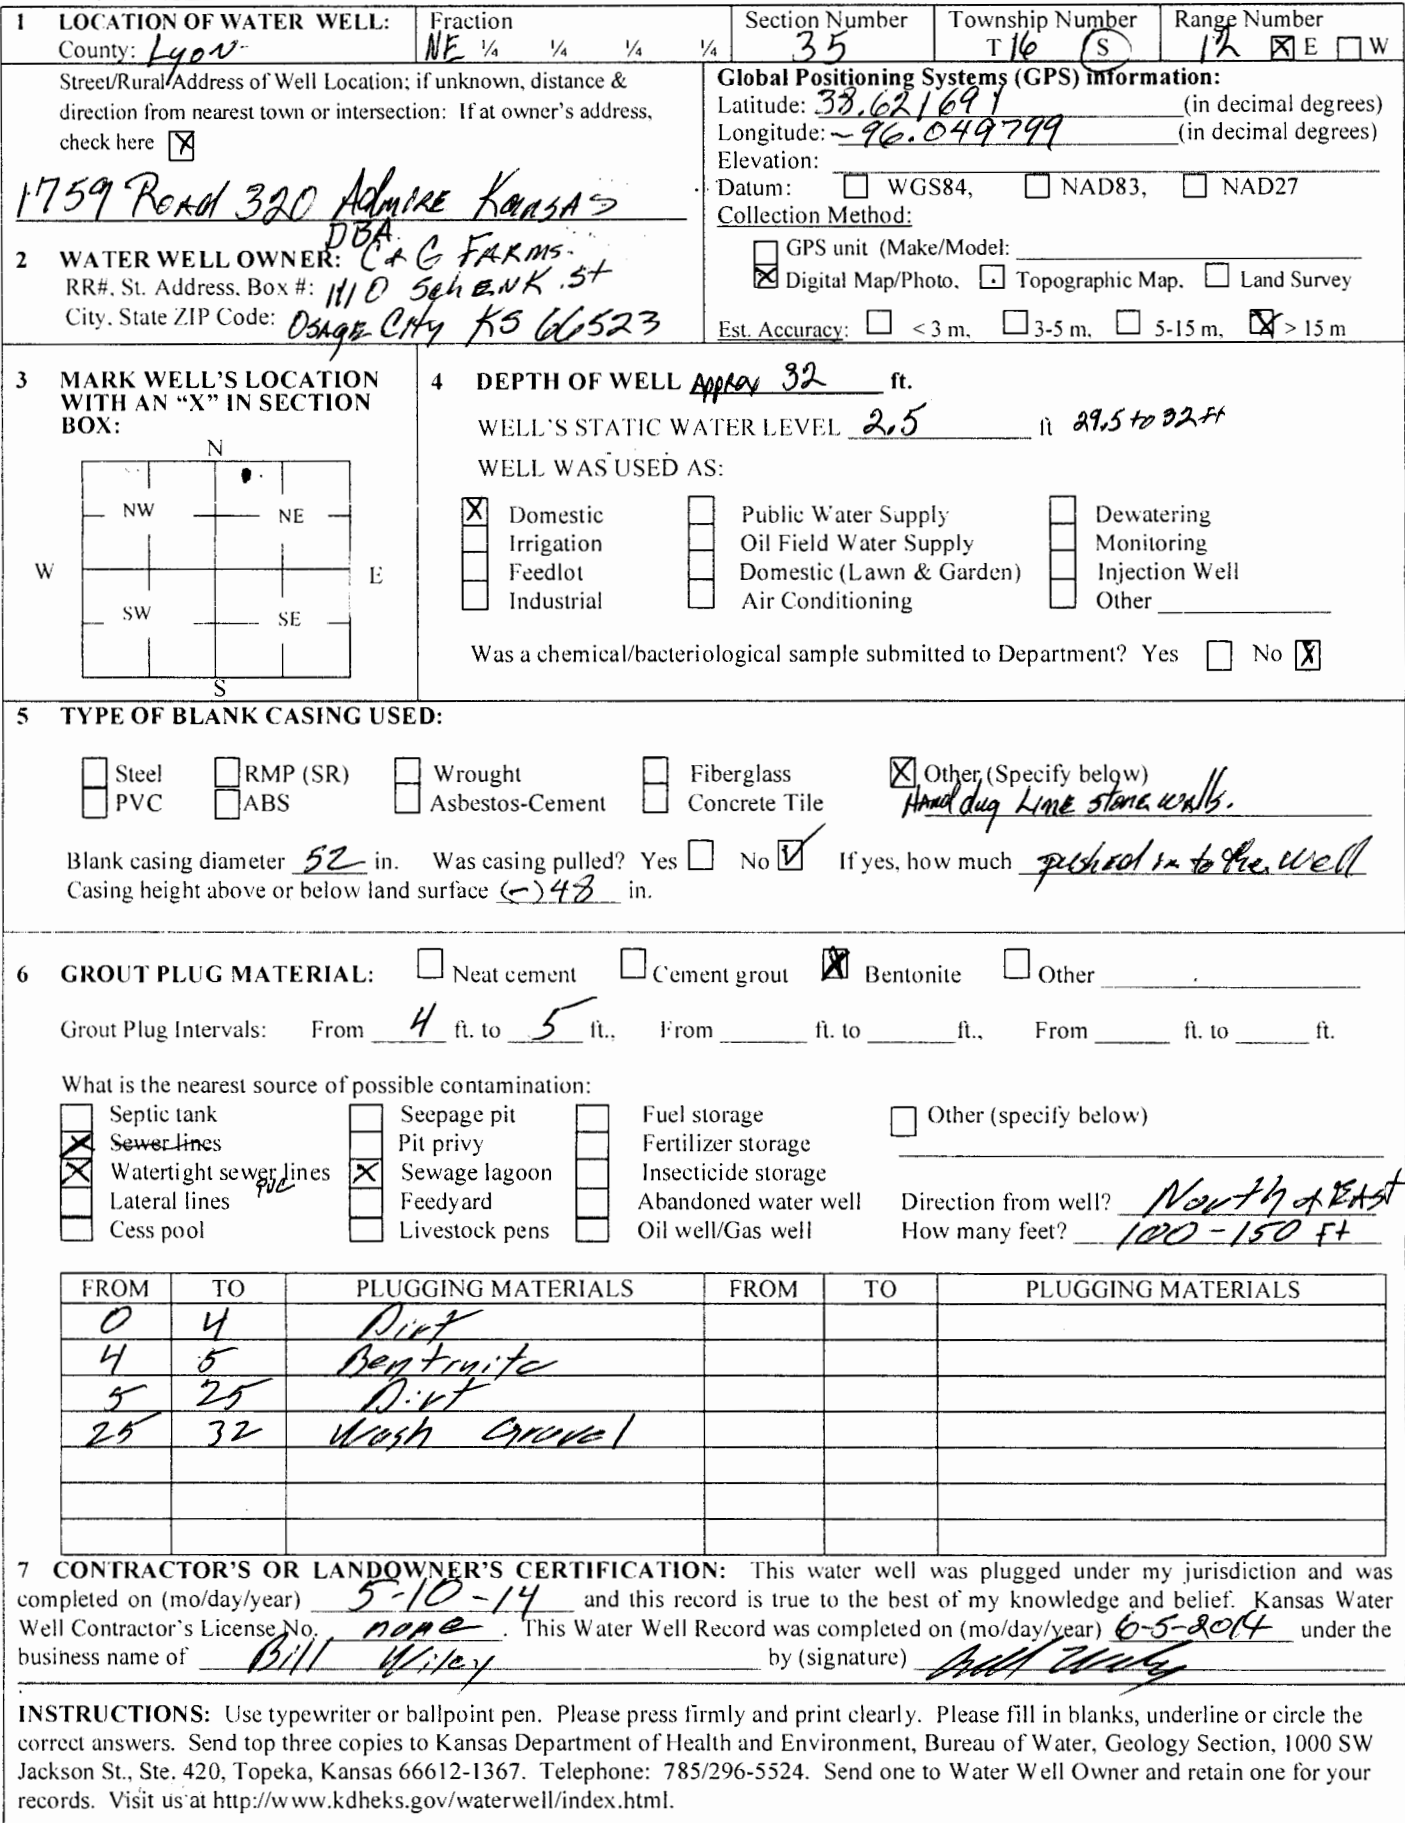 1 LOCATION OF WATER WELL: Fraction Section Number Township Number Range Number
County: Lyon NE ¼ ¼ ¼ ¼ 35 T 16 S 12 ☒ E ☐ W
Street/Rural Address of Well Location; if unknown, distance &
direction from nearest town or intersection: If at owner's address,
check here ☒
1759 Road 320 Admire Kansas
Global Positioning Systems (GPS) information:
Latitude: 38.621691 (in decimal degrees)
Longitude: -96.049799 (in decimal degrees)
Elevation:
Datum: ☐ WGS84, ☐ NAD83, ☐ NAD27
Collection Method:
☐ GPS unit (Make/Model:
☒ Digital Map/Photo, ☐ Topographic Map, ☐ Land Survey
Est. Accuracy: ☐ < 3 m, ☐ 3-5 m, ☐ 5-15 m, ☒ > 15 m
DBA
2 WATER WELL OWNER: C & G FARMS
RR#, St. Address, Box #: 1110 Schenk St
City, State ZIP Code: Osage City KS 66523
3 MARK WELL'S LOCATION
WITH AN "X" IN SECTION
BOX:
N
NW NE
W E
SW SE
S
4 DEPTH OF WELL Approx 32 ft.
WELL'S STATIC WATER LEVEL 2.5 ft 29.5 to 32 ft
WELL WAS USED AS:
☒ Domestic ☐ Public Water Supply ☐ Dewatering
☐ Irrigation ☐ Oil Field Water Supply ☐ Monitoring
☐ Feedlot ☐ Domestic (Lawn & Garden) ☐ Injection Well
☐ Industrial ☐ Air Conditioning ☐ Other
Was a chemical/bacteriological sample submitted to Department? Yes ☐ No ☒
5 TYPE OF BLANK CASING USED:
☐ Steel ☐ RMP (SR) ☐ Wrought ☐ Fiberglass ☒ Other (Specify below)
☐ PVC ☐ ABS ☐ Asbestos-Cement ☐ Concrete Tile Hand dug Lime stone walls.
Blank casing diameter 52 in. Was casing pulled? Yes ☐ No ☑ If yes, how much pushed in to the well
Casing height above or below land surface (-) 48 in.
6 GROUT PLUG MATERIAL: ☐ Neat cement ☐ Cement grout ☒ Bentonite ☐ Other
Grout Plug Intervals: From 4 ft. to 5 ft., From ft. to ft., From ft. to ft.
What is the nearest source of possible contamination:
☐ Septic tank ☐ Seepage pit ☐ Fuel storage ☐ Other (specify below)
☒ Sewer lines ☐ Pit privy ☐ Fertilizer storage
☒ Watertight sewer lines ☒ Sewage lagoon ☐ Insecticide storage
PVC
☐ Lateral lines ☐ Feedyard ☐ Abandoned water well Direction from well? North & East
☐ Cess pool ☐ Livestock pens ☐ Oil well/Gas well How many feet? 100-150 ft
FROM TO PLUGGING MATERIALS FROM TO PLUGGING MATERIALS
0 4 Dirt
4 5 Bentnite
5 25 Dirt
25 32 Wash Gravel
7 CONTRACTOR'S OR LANDOWNER'S CERTIFICATION: This water well was plugged under my jurisdiction and was
completed on (mo/day/year) 5-10-14 and this record is true to the best of my knowledge and belief. Kansas Water
Well Contractor's License No. none . This Water Well Record was completed on (mo/day/year) 6-5-2014 under the
business name of Bill Wiley by (signature) Bill Wiley
INSTRUCTIONS: Use typewriter or ballpoint pen. Please press firmly and print clearly. Please fill in blanks, underline or circle the
correct answers. Send top three copies to Kansas Department of Health and Environment, Bureau of Water, Geology Section, 1000 SW
Jackson St., Ste. 420, Topeka, Kansas 66612-1367. Telephone: 785/296-5524. Send one to Water Well Owner and retain one for your
records. Visit us at http://www.kdheks.gov/waterwell/index.html.